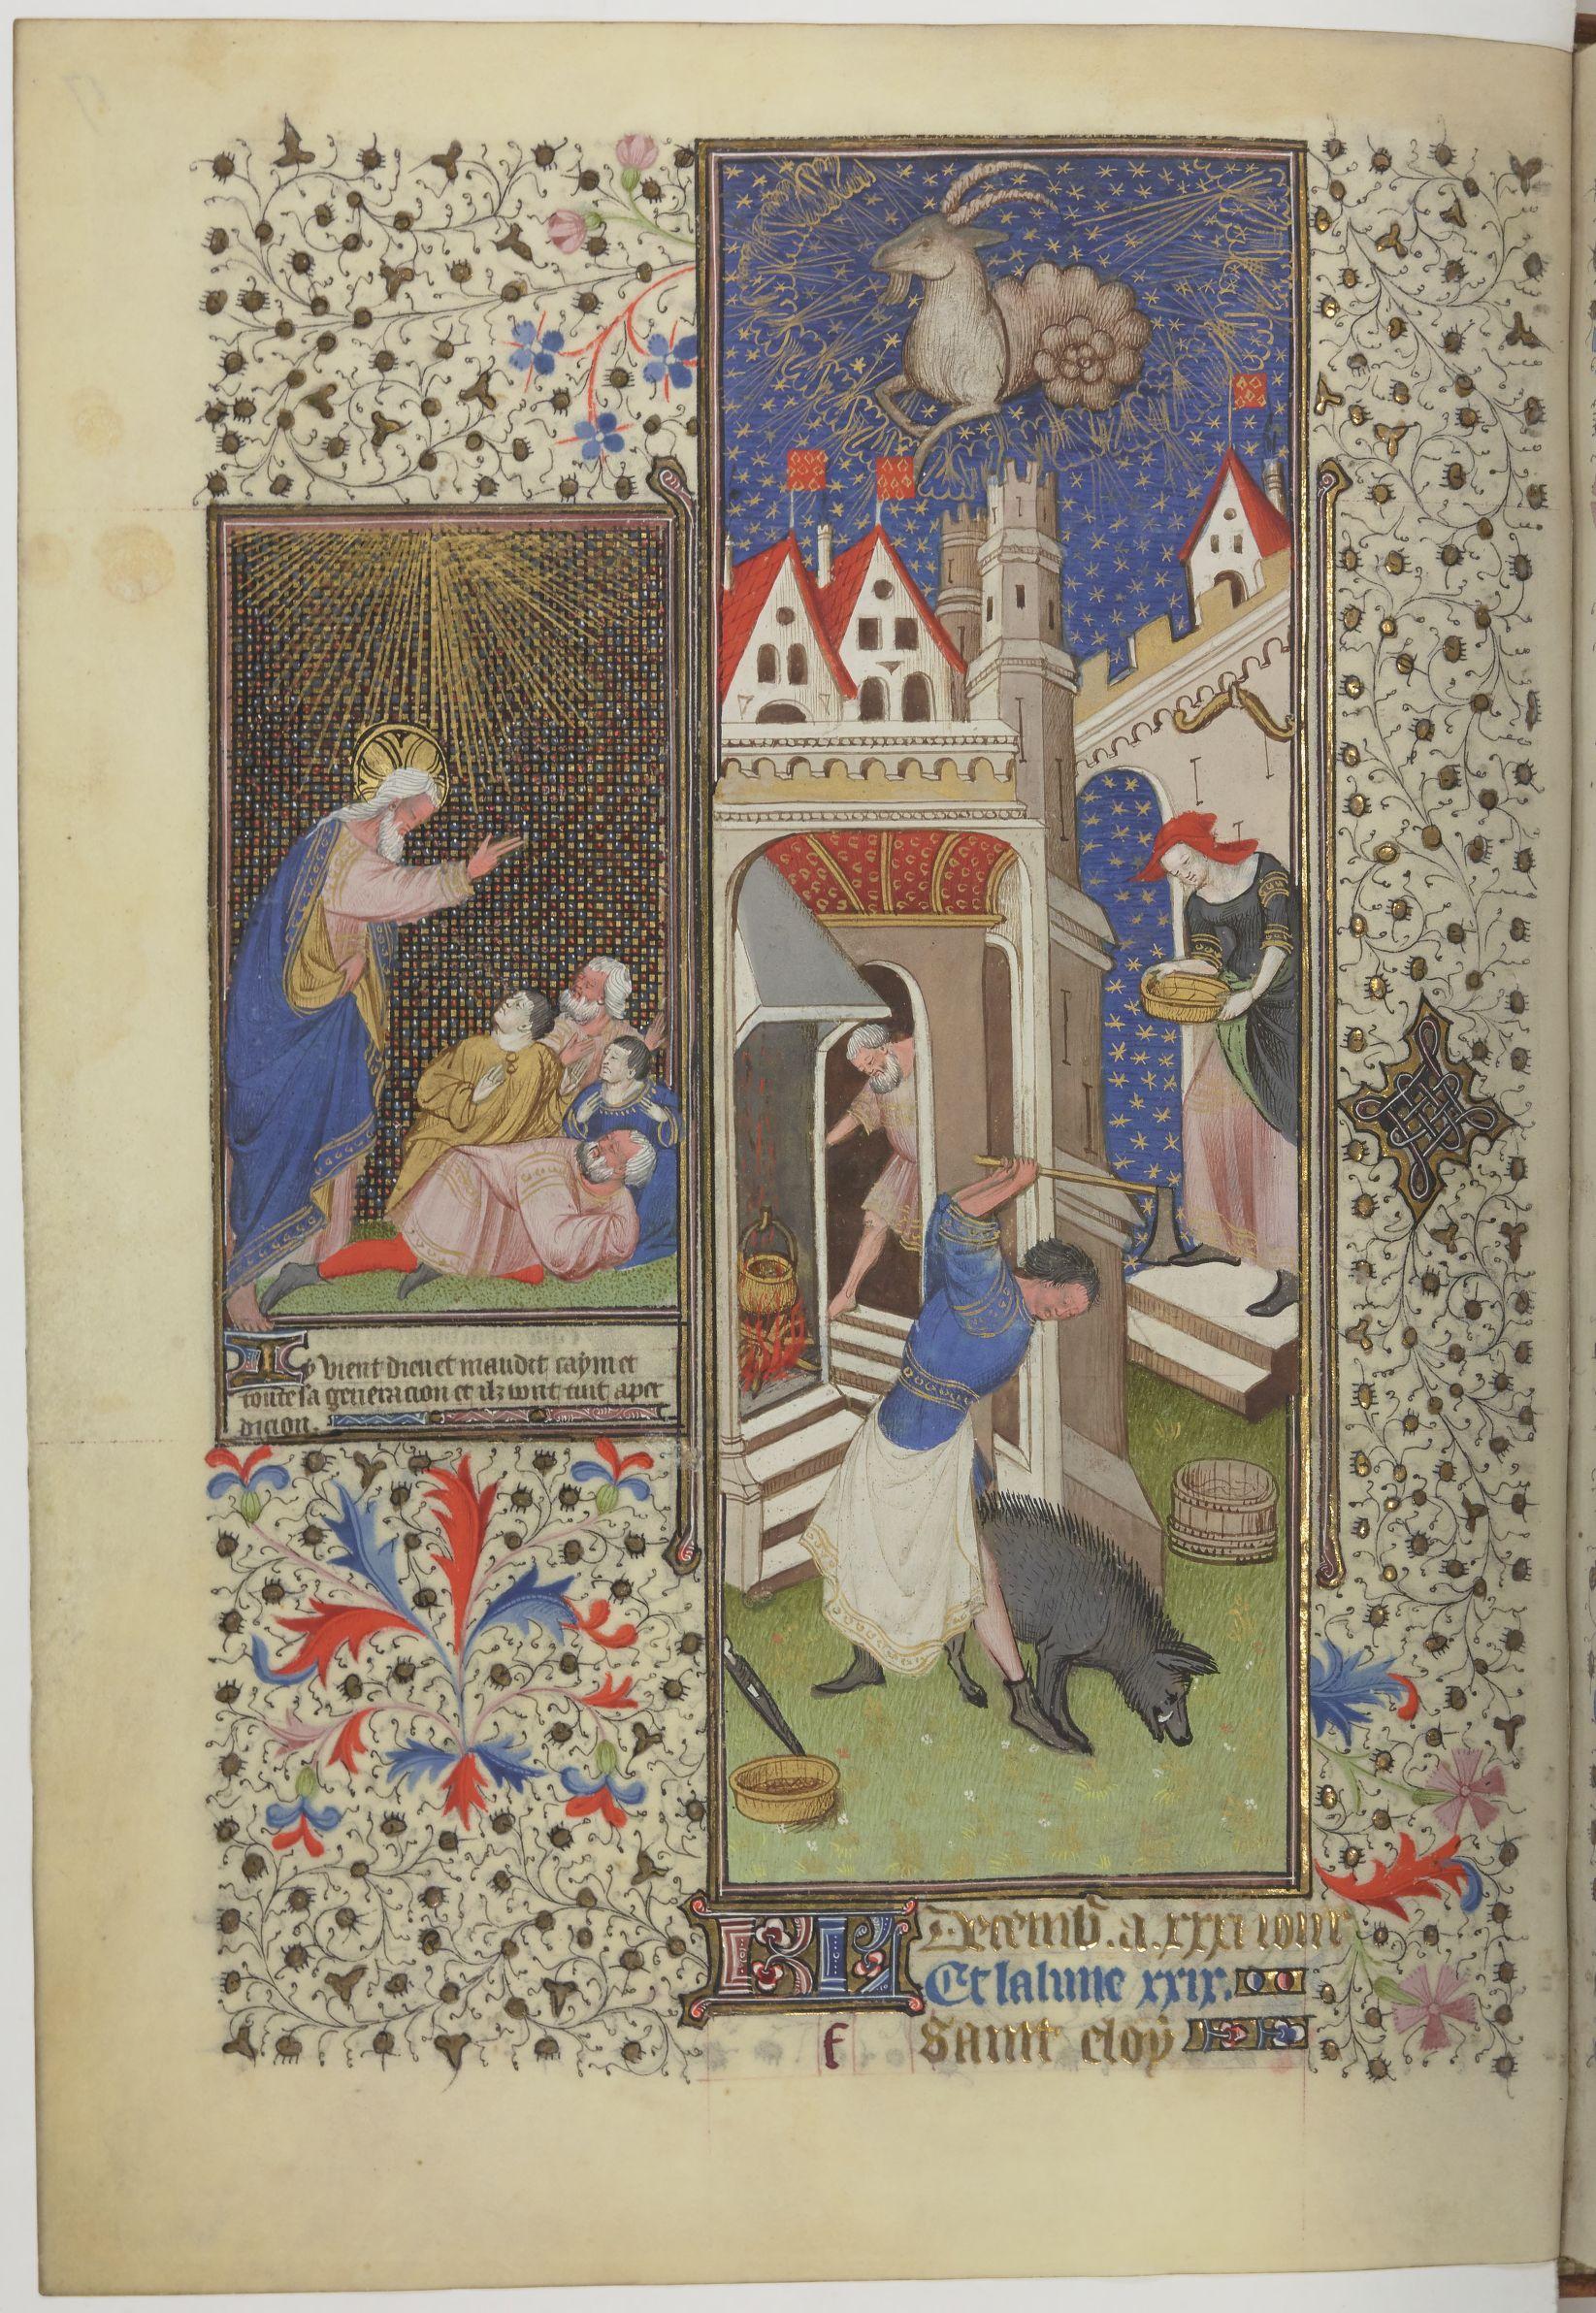 Icy vient dieu et maudit caym et
toute sa generacion et ilz vont tuit a per
dicion.
KL Decemb̄. a. xxxi iour
Et la lune xxix.
f Saint eloy